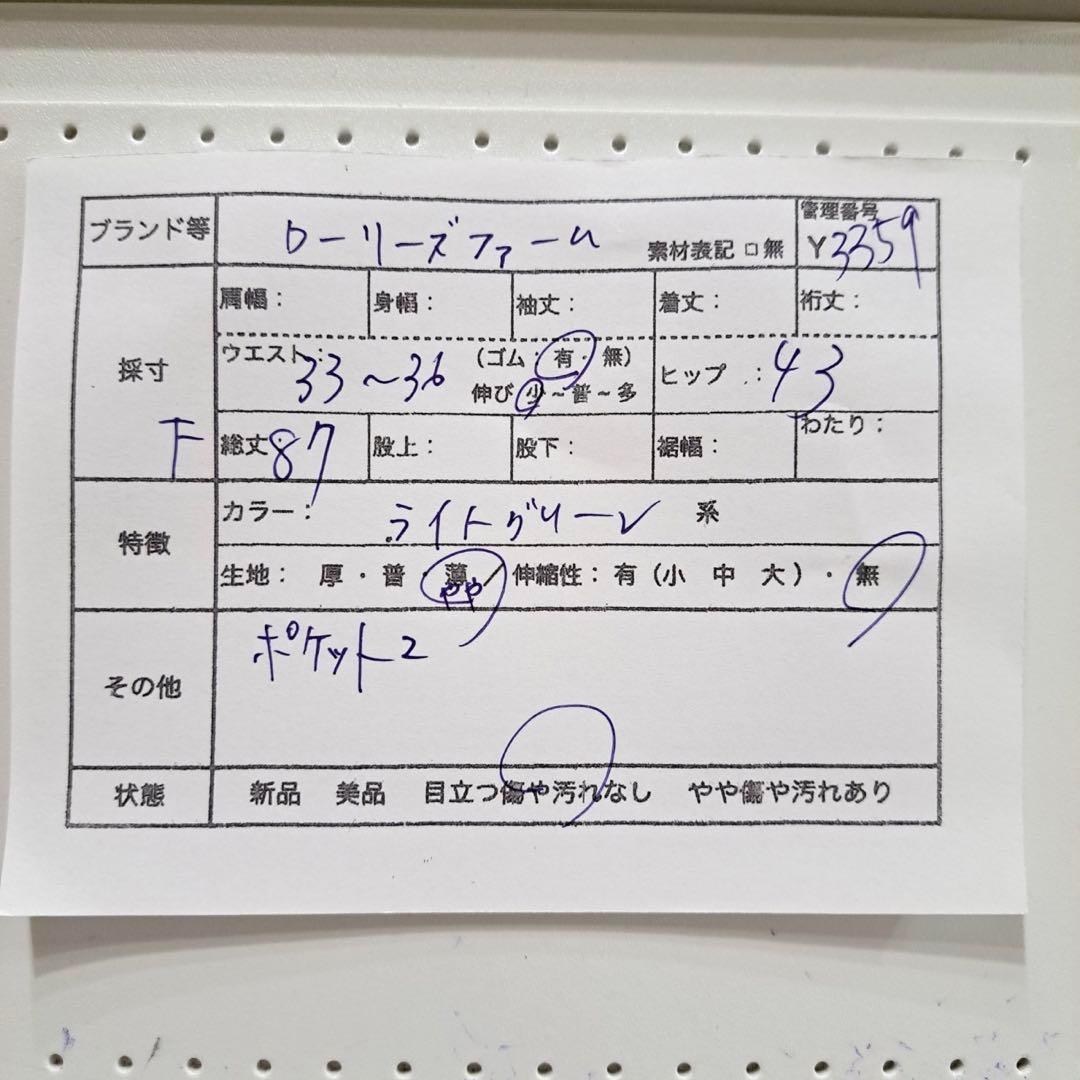 ブランド等 ローリーズファーム 素材表記 □ 無 管理番号 Y3359
採寸 F
肩幅： 身幅： 袖丈： 着丈： 裄丈：
ウエスト：33～36 （ゴム・有・無） 伸び 少～普～多 ヒップ：43
総丈：87 股上： 股下： 裾幅： わたり：
特徴
カラー： ライトグリーン 系
生地： 厚・普 薄 やや ／ 伸縮性：有（小 中 大）・無
その他 ポケット2
状態 新品 美品 目立つ傷や汚れなし やや傷や汚れあり